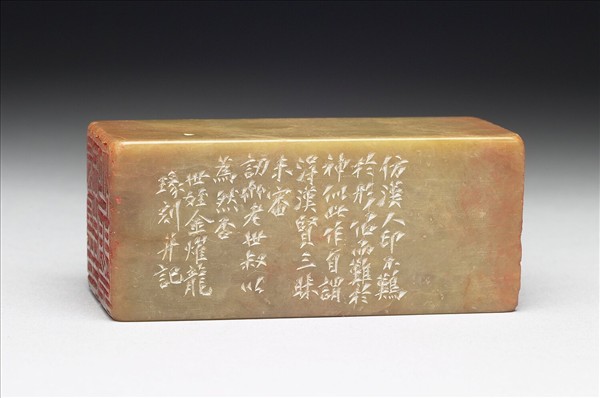 仿漢人印不難
於形似而難於
神似此作自謂
得漢賢三昧
未審
卿老世叔以
為然否
世姪金燿龍
瑑刻并記